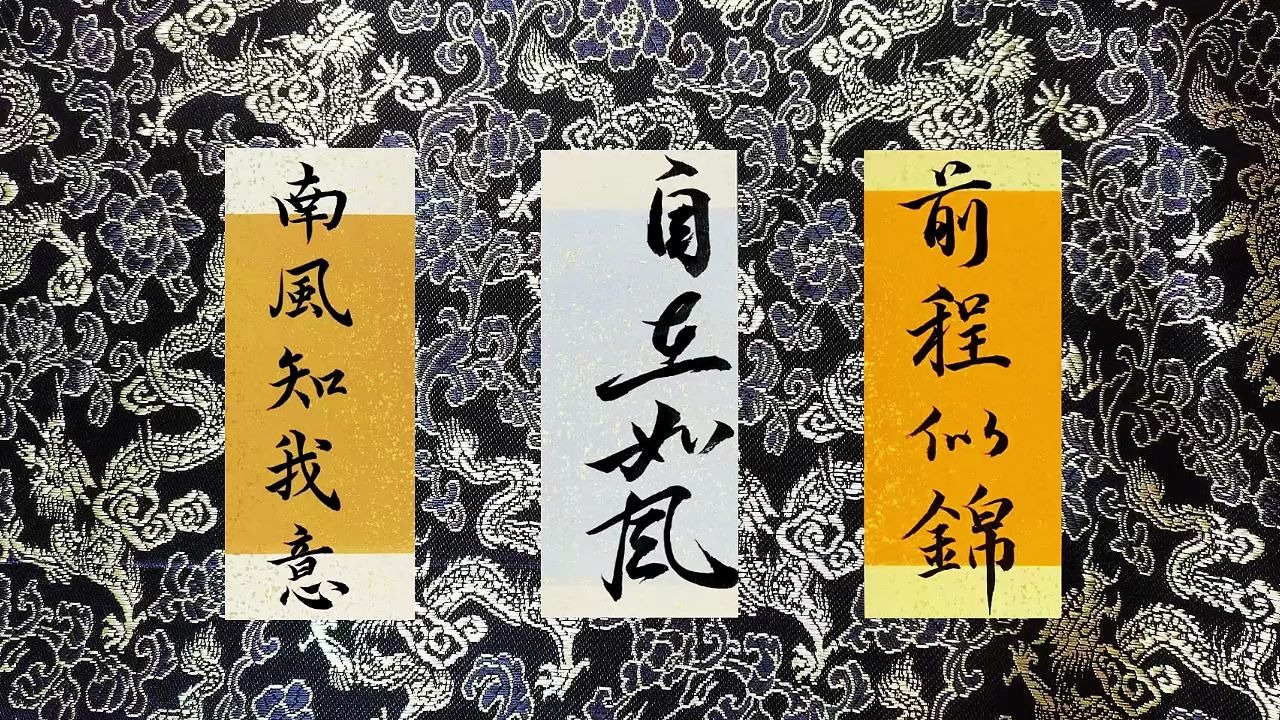 南風知我意
自在如風
前程似錦